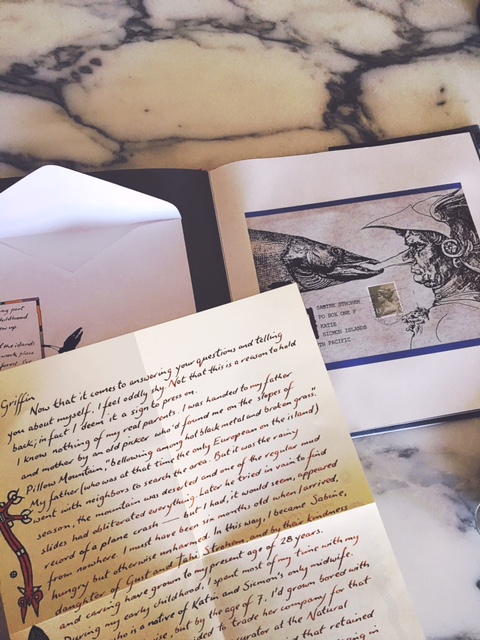 SABINE STROHEM
PO BOX ONE F
KATIE
SICMON ISLANDS
TH PACIFIC
ing past
ildhood
up.
the islands
work place
Griffin
Now that it comes to answering your questions and telling
you about myself, I feel oddly shy. Not that this is a reason to hold
back; in fact I deem it a sign to press on.
I know nothing of my real parents. I was handed to my father
and mother by an old picker who'd found me on the slopes of
Pillow Mountain, "bellowing among hot black metal and broken grass."
My father (who was at that time the only European on the island)
went with neighbors to search the area. But it was the rainy
season, the mountain was deserted and one of the regular mud
slides had obliterated everything. Later he tried in vain to find
record of a plane crash — but I had, it would seem, appeared
from nowhere. I must have been six months old when I arrived,
hungry but otherwise unharmed. In this way, I became Sabine,
daughter of Gust and Tahi Strohem, and by their kindness
and caring have grown to my present age of 28 years.
During my early childhood, I spent most of my time with my
who is a native of Katin and Sicmon's only midwife.
ise, but by the age of 7, I'd grown bored with
ded to trade her company for that
urator at the Natural
that retained